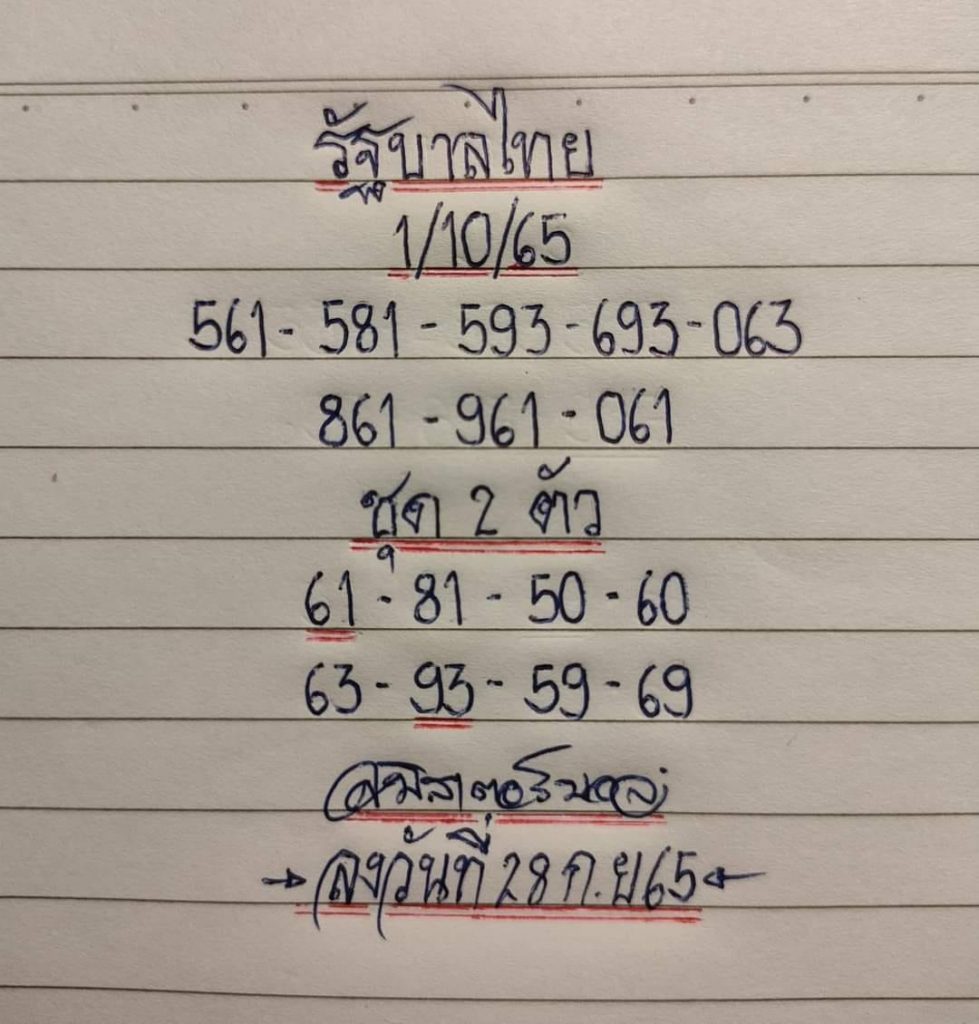 รัฐบาลไทย
1/10/65
561 - 581 - 593 - 693 - 063
861 - 961 - 061
ชุด 2 ตัว
61 - 81 - 50 - 60
63 - 93 - 59 - 69
→ ลงวันที่ 28 ก.ย 65 ←